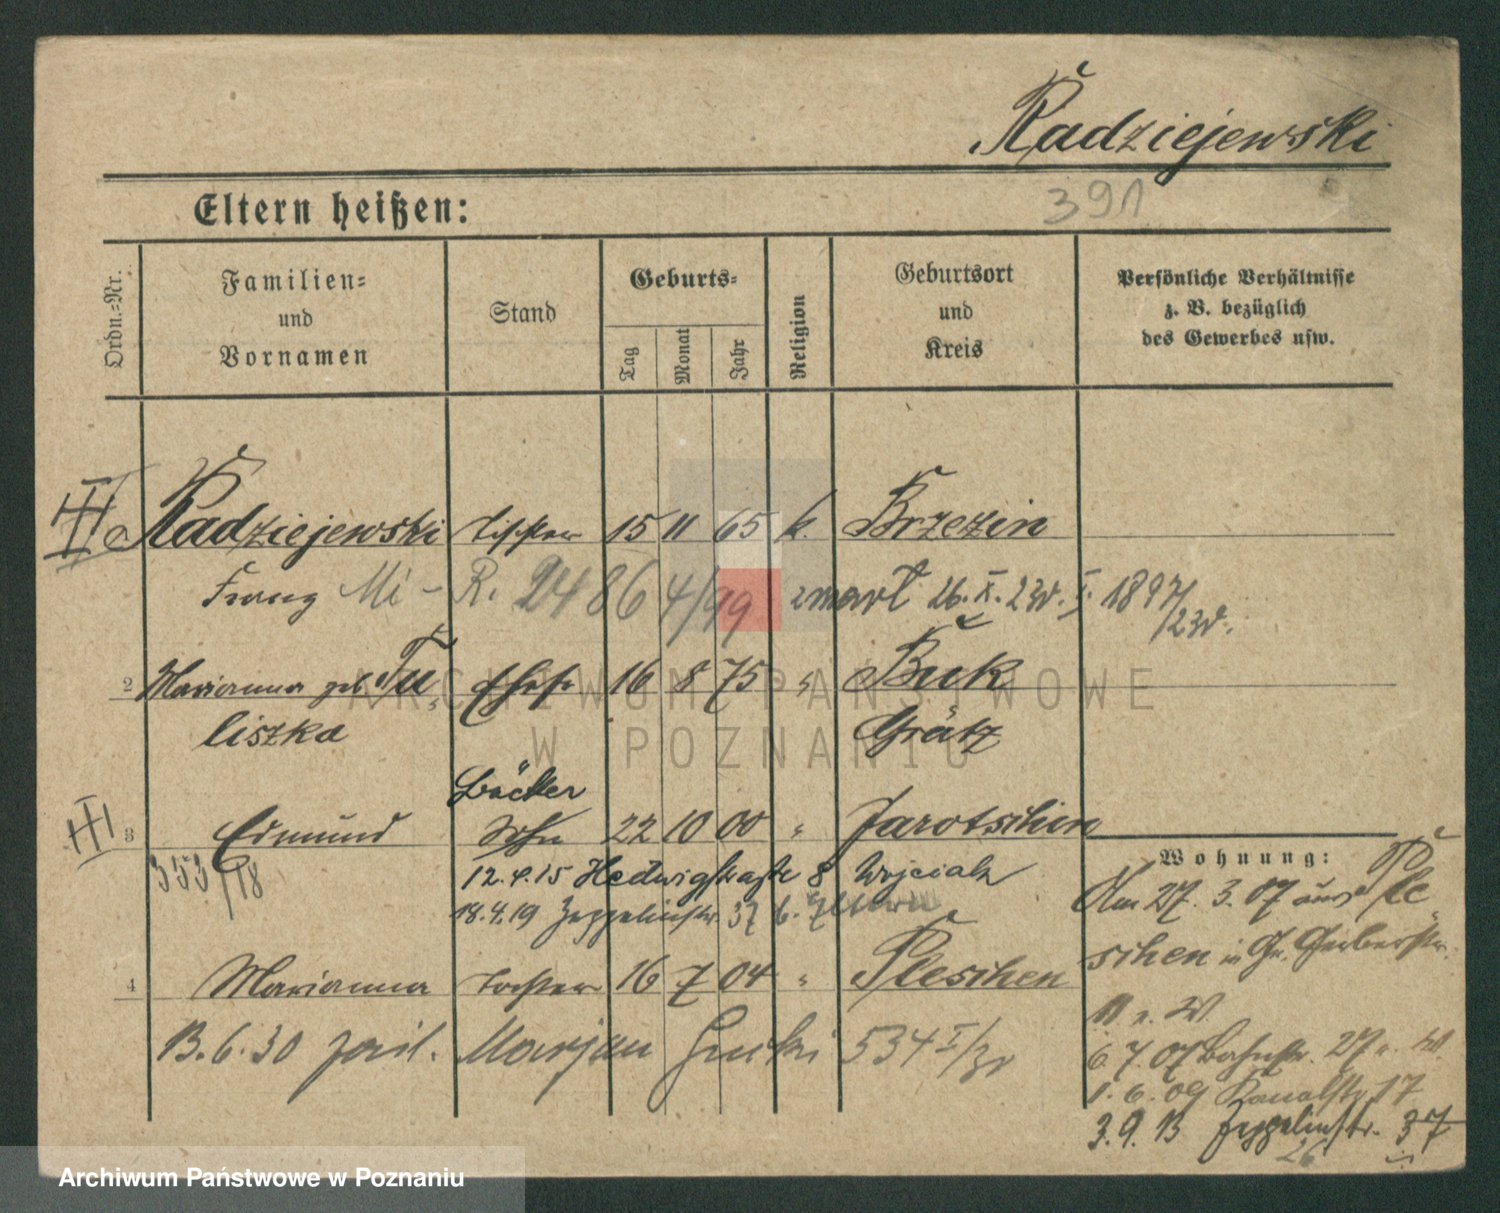 Radziejewski
391
Eltern heißen:
Ordn.-Nr.
Familien-
und
Vornamen
Stand
Geburts-
Tag
Monat
Jahr
Religion
Geburtsort
und
Kreis
Persönliche Verhältnisse
z. B. bezüglich
des Gewerbes usw.
Radziejewski Tischler 15 11 65 k. Brzezin
Franz Mi-R. 24864/99 zmarł 26.X.23r. 1897/23r.
2 Marianna geb. Tu- Ehefr 16 8 75 " Buk
liszka Grätz
Bäcker
3 Edmund Sohn 22 10 00 " Jarotschin
353/18 12.4.15 Hedwigstraße 8 Wojciak
18.4.19 Zeppelinstr. 37 b.
4 Marianna Tochter 16 7 04 " Pleschen
13.6.30 Marjan 534 I/30
Wohnung:
Am 27.3.07 aus Ple-
schen in Gr. Gerberstr.
11 n. W
6.7.07 Bahnstr. 27
1.6.09 Kanalstr 17
3.9.13 Zeppelinstr. 37
26
ARCHIWUM PAŃSTWOWE
W POZNANIU
Archiwum Państwowe w Poznaniu